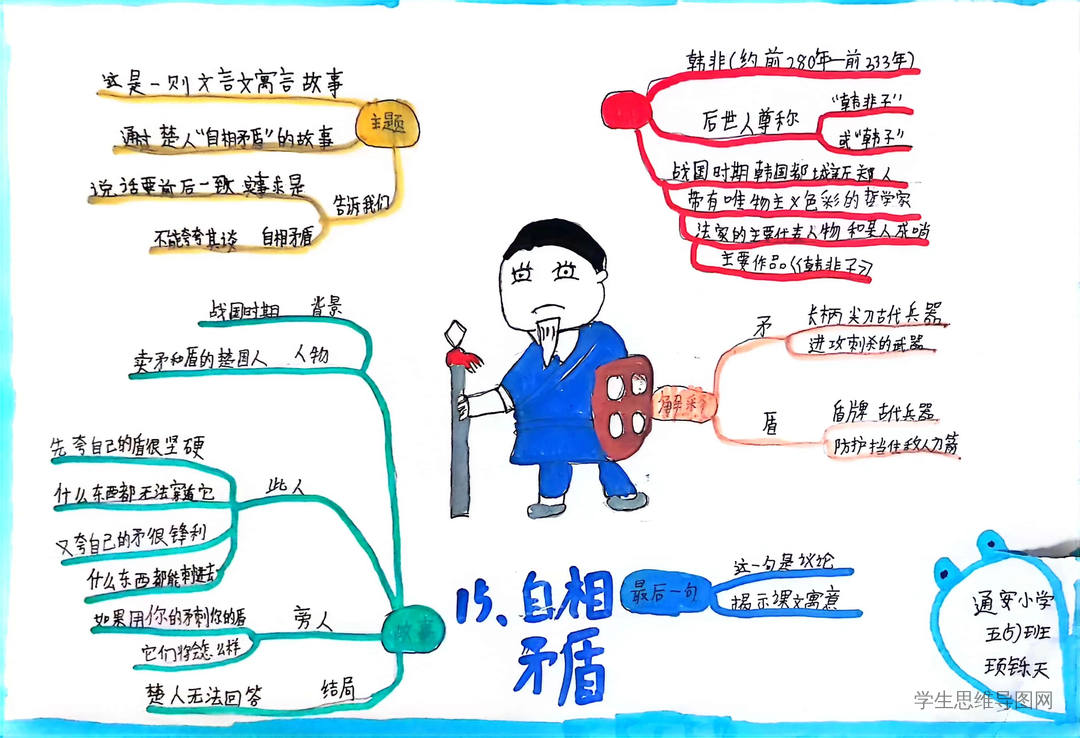 这是一则文言文寓言故事
通过楚人"自相矛盾"的故事
主题
说话要前后一致 实事求是
告诉我们
不能夸夸其谈 自相矛盾
韩非(约前280年—前233年)
后世人尊称
"韩非子"
或"韩子"
战国时期韩国都城新郑人
带有唯物主义色彩的哲学家
法家的主要代表人物
主要作品《韩非子》
战国时期 背景
卖矛和盾的楚国人 人物
矛
长柄 尖刀古代兵器
进攻刺杀的武器
解释
盾
盾牌 古代兵器
防护挡住敌人刀箭
先夸自己的盾很坚硬
什么东西都无法穿透它
此人
又夸自己的矛很锋利
什么东西都能刺进去
如果用你的矛刺你的盾
旁人
它们将会怎么样
故事
楚人无法回答 结局
15、自相
矛盾
最后一句
这一句是议论
揭示课文寓意
小学
班
学生思维导图网